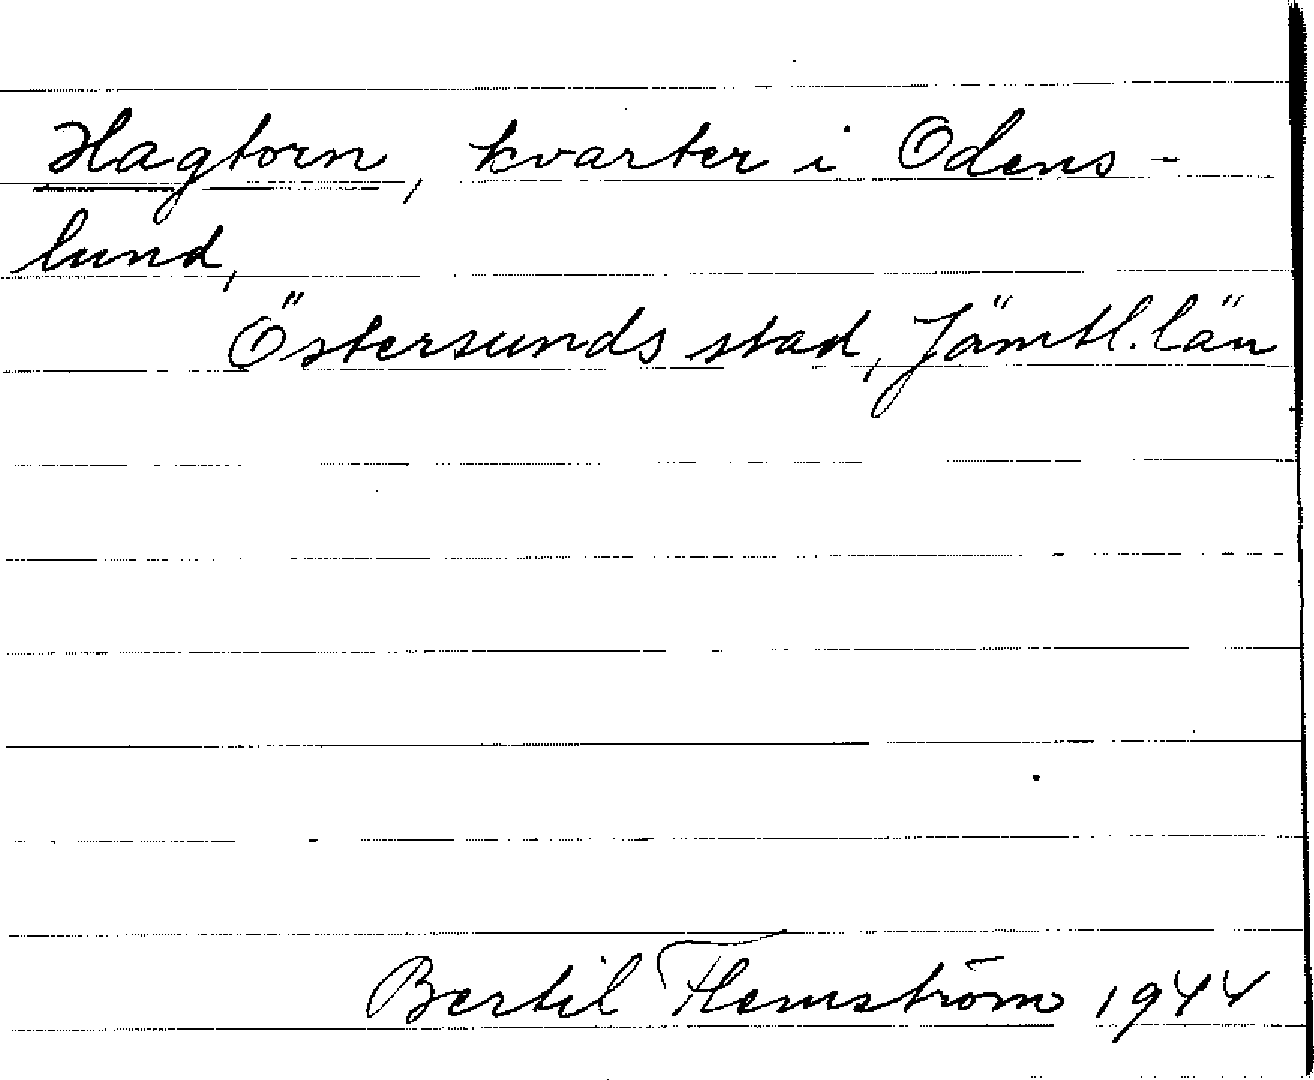 Hagtorn, kvarter i Odens-
lund,
Östersunds stad, Jämtl. län
Bertil Flemström 1944